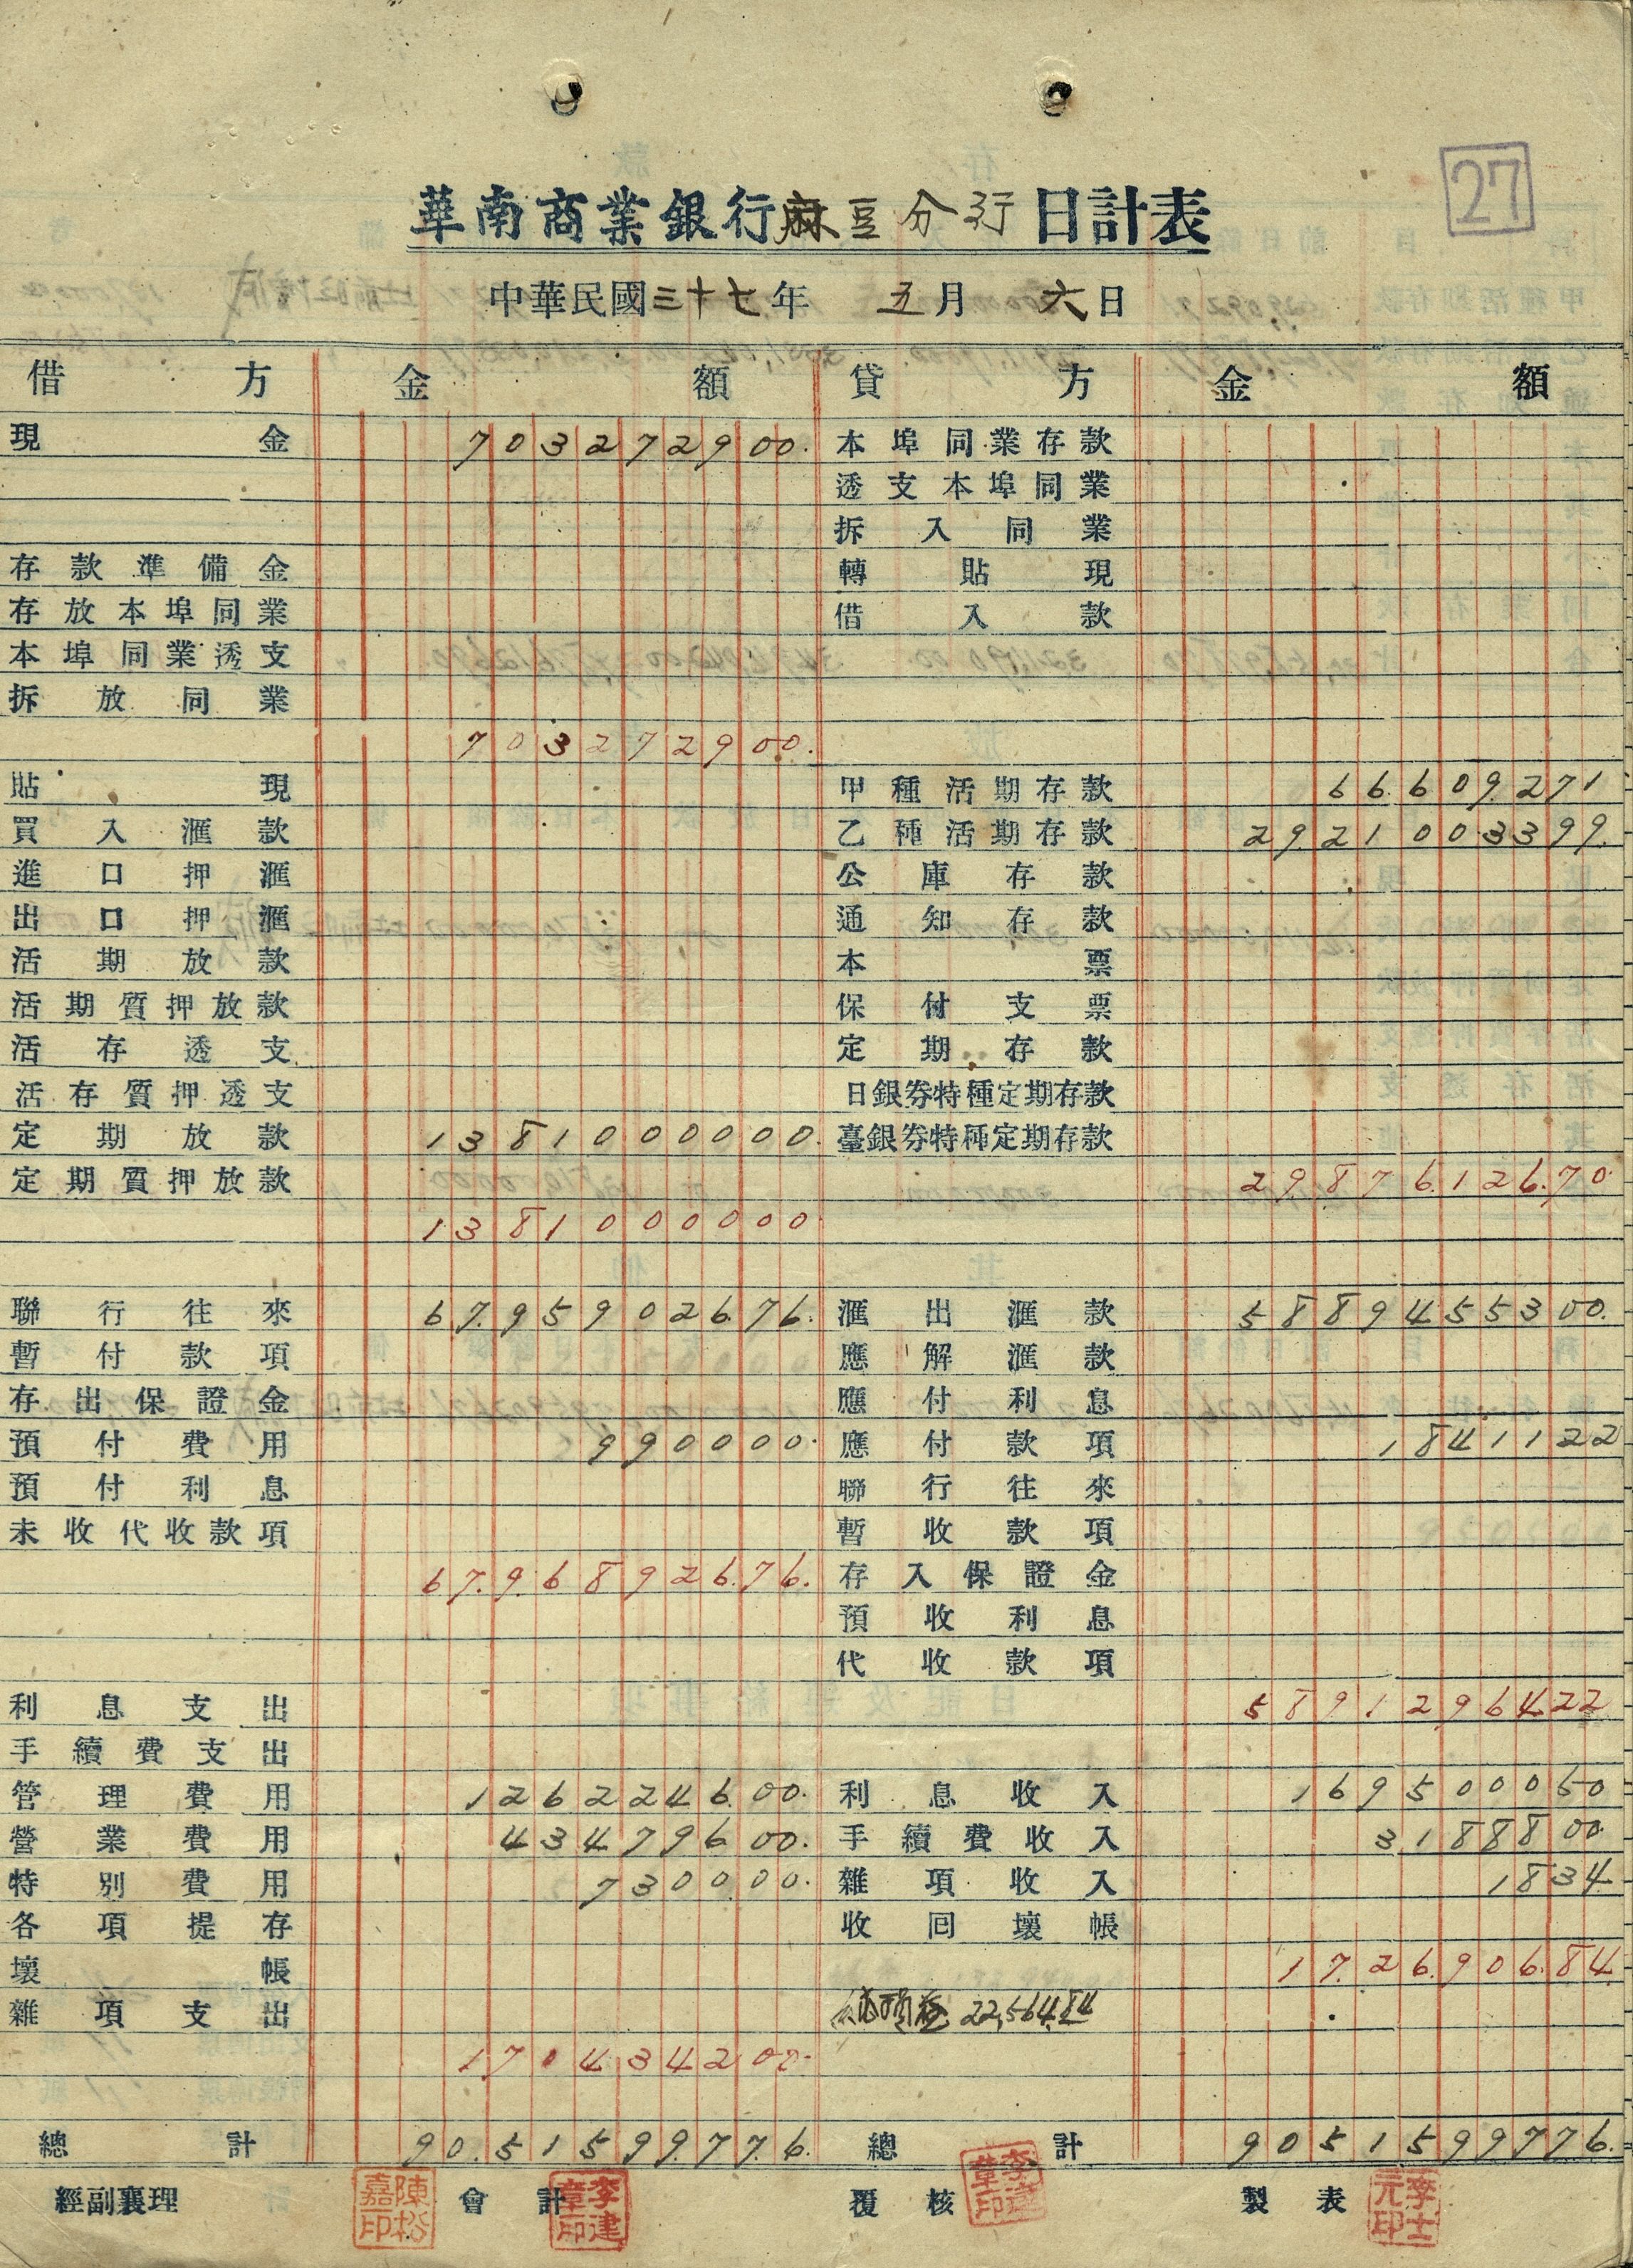 27
華南商業銀行麻豆分行日計表
中華民國三十七年 五月 六日
借方 金額 貸方 金額
現金 7032729 00 本埠同業存款
透支本埠同業
拆入同業
存款準備金 轉貼現
存放本埠同業 借入款
本埠同業透支
拆放同業
7032729 00
貼現 甲種活期存款 666092 71
買入滙款 乙種活期存款 29210033 99
進口押滙 公庫存款
出口押滙 通知存款
活期放款 本票
活期質押放款 保付支票
活存透支 定期存款
活存質押透支 日銀券特種定期存款
定期放款 13810000 00 臺銀券特種定期存款
定期質押放款 29876126 70
13810000 00
聯行往來 67959026 76 滙出滙款 58894553 00
暫付款項 應解滙款
存出保證金 應付利息
預付費用 9900 00 應付款項 18411 22
預付利息 聯行往來
未收代收款項 暫收款項
67968926 76 存入保證金
預收利息
代收款項
利息支出 58912964 22
手續費支出
管理費用 1262246 00 利息收入 1695000 50
營業費用 434796 00 手續費收入 31888 00
特別費用 7300 00 雜項收入 18 34
各項提存 收囘壞帳
壞帳 1726906 84
雜項支出 22,564.84
1704342 00
總計 90515997 76 總計 90515997 76
經副襄理 陳松嘉印 會計 李建章印 覆核 李建章印 製表 李士元印